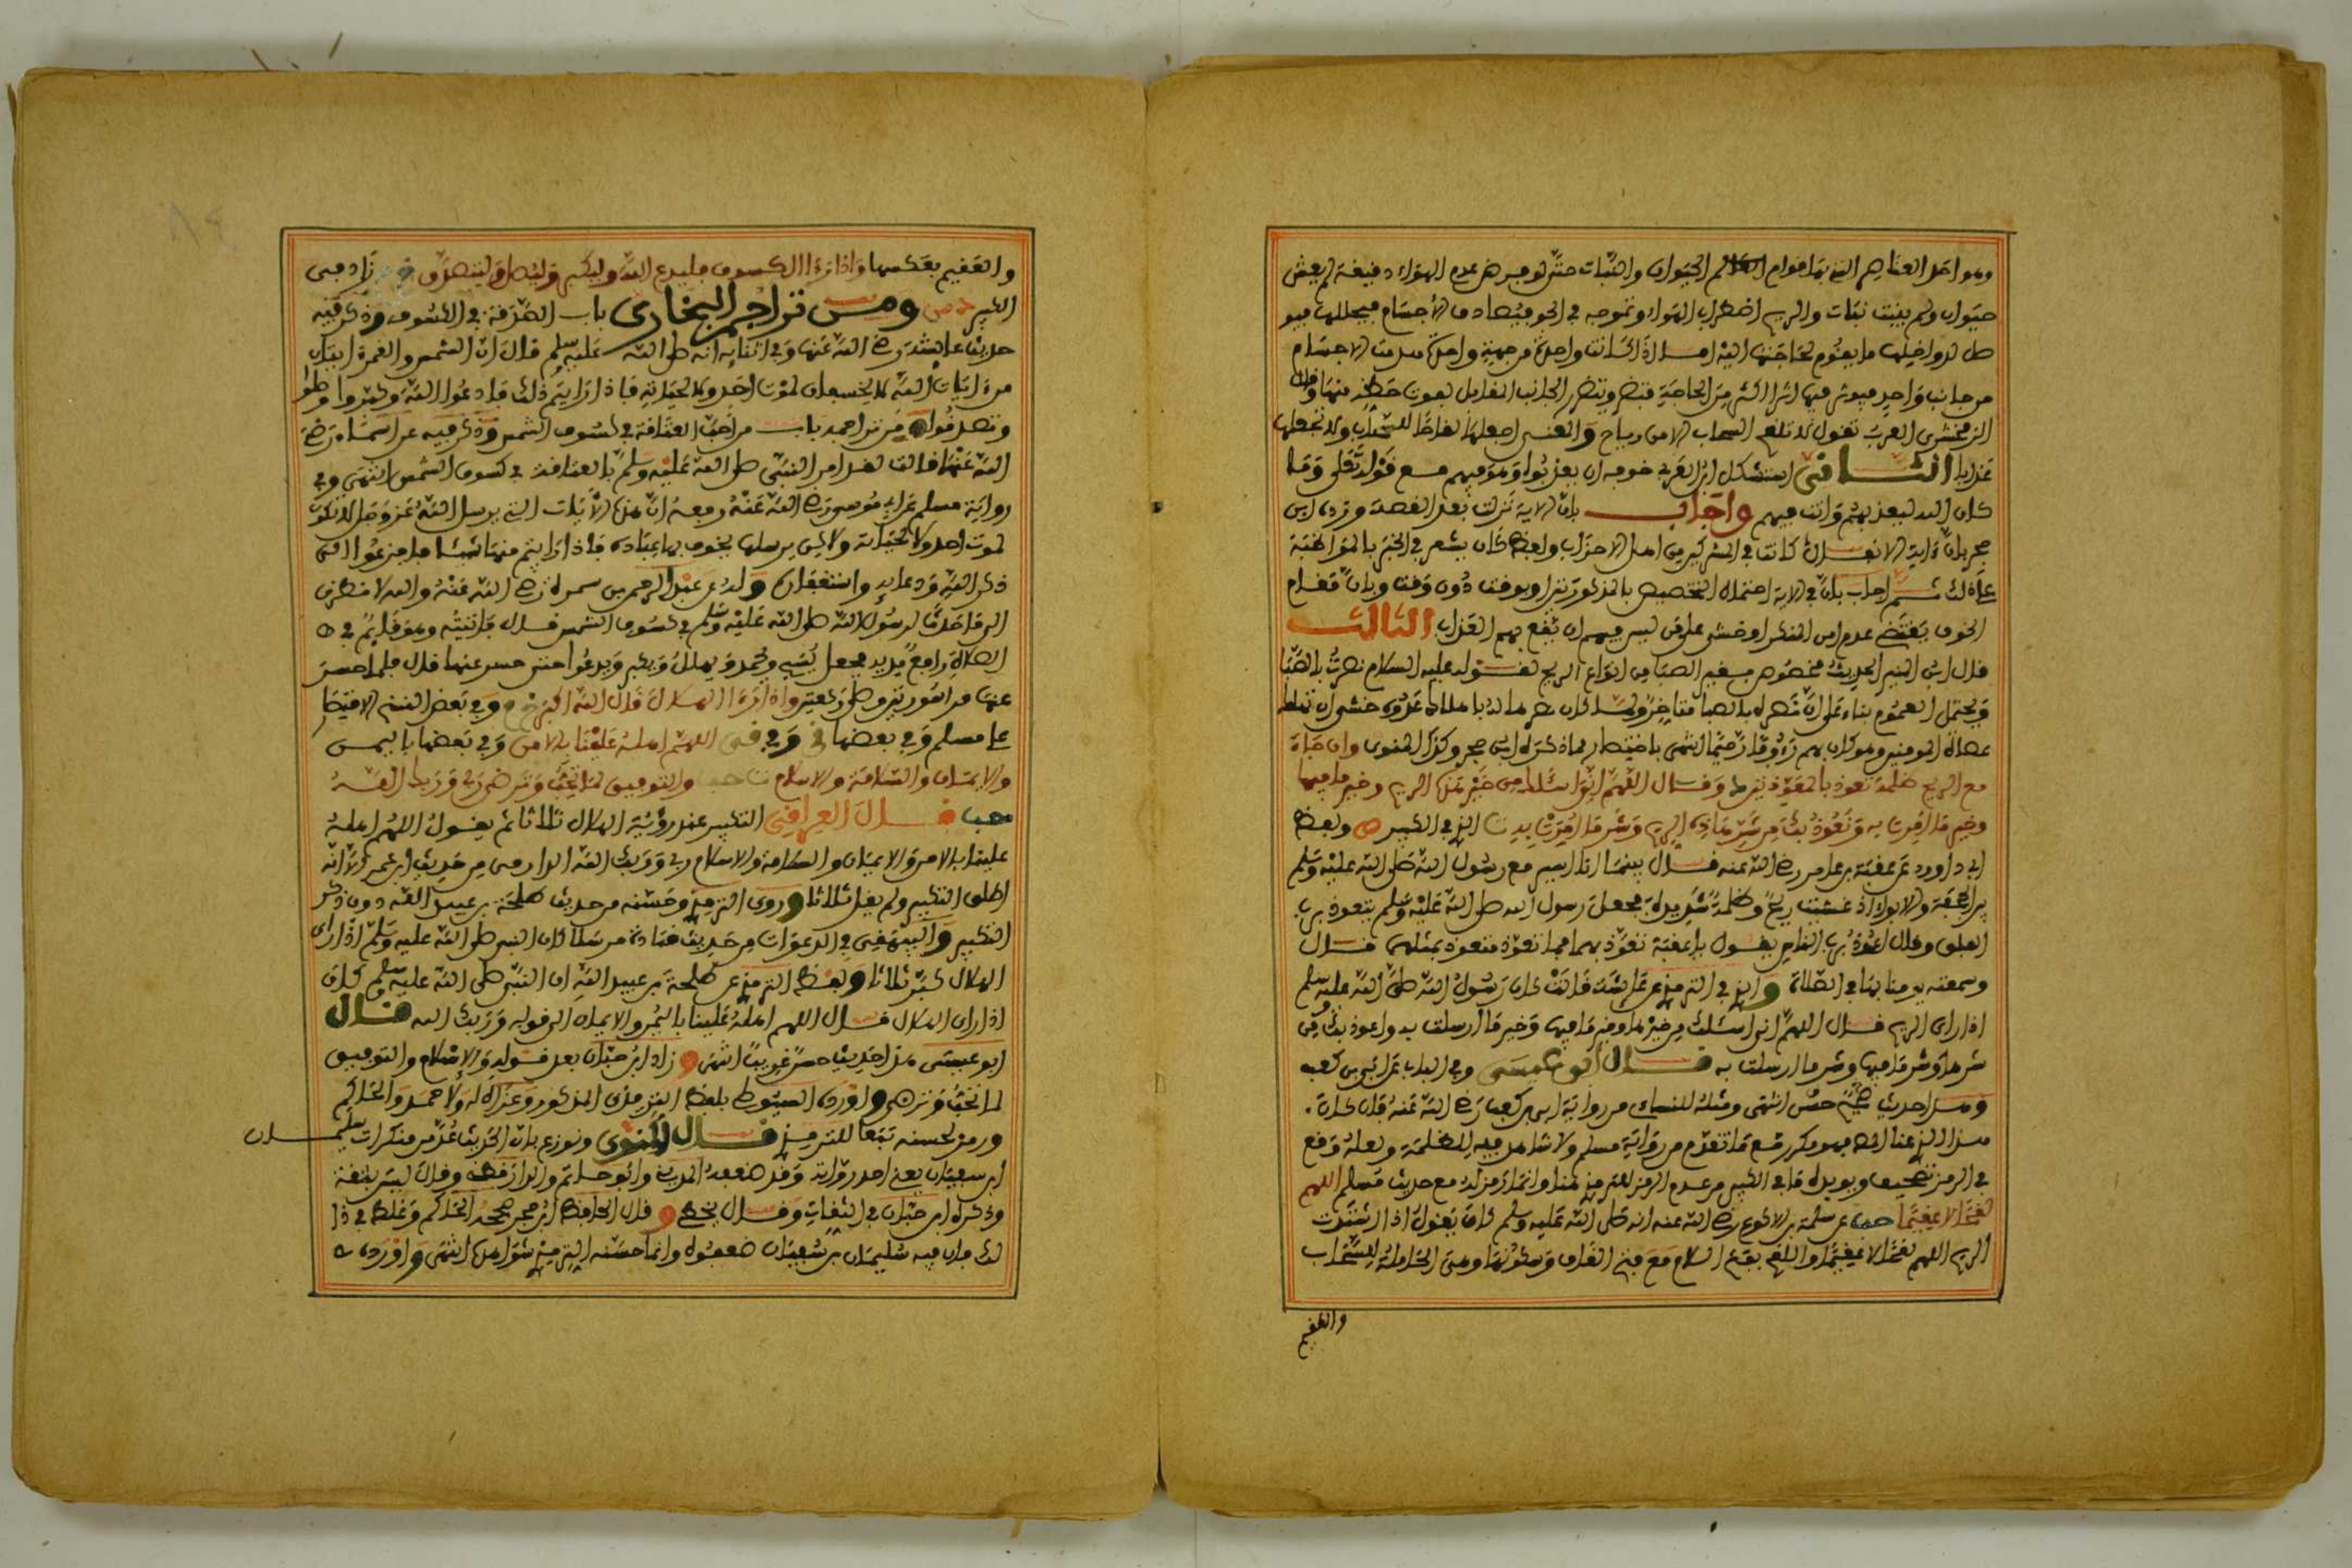 وهو احد العناصر التي بها قوام العالم الحيوان والنبات حتى لو فرض عدم الهواء دقيقة لم يعش
حيوان ولم ينبت نبات والريح اضطراب الهواء وتموجه في الجو فيصادف الاجسام فيحللها فيو
صل لدواخلها ما يقوم لحاجتها اليه اما اذا كانت واحدة من جهة واحدة صدمت الاجسام
من جانب واحد فيوثر فيها اثرا اكثر من الحاجة فتضر ويتضرر الجانب المقابل بفوت حظه منها وقال
الزمخشري العرب تقول لا تلقح السحاب الا من رياح والمعنى اجعلها لقاحا للسحاب ولا تجعلها
عذابا الثاني استشكل ابن العربي خوفه ان يعذبوا وهو فيهم مع قوله تعلى وما
كان الله ليعذبهم وانت فيهم واجاب بان الاية نزلت بعد القصة ورده ابن
حجر بان ءاية الانفال كانت في المشركين من اهل الاحزاب ولفظ كان يشعر في الخبر بالمواظبة
على ذلك ثم اجاب بان في الاية احتمال التخصيص بالمذكورين او بوقت دون وقت وبان مقام
الخوف يقتضي عدم امن المكر او خشي على من ليس فيهم ان يقع بهم العذاب الثالث
قال ابن المنير الحديث مخصوص بغير الصبا من انواع الريح لقوله عليه السلام نصرت بالصبا
ويحتمل العموم بناء على ان نصره بالصبا متاخر
صلاة المومنين وهو كان بهم رءوفا رحيما انتهى باختصار مما ذكره ابن حجر وكذا المنوى وان جاء
مع الريح ظلمة تعوذ بالمعوذتين ط وقال اللهم انى اسئلك من خير هذه الريح وخير ما فيها
وخير ما امرت به ونعوذ بك من شر هذه الريح وشر ما امرت به ت ولفظ
ابي داوود عن عقبة بن عامر رضي الله عنه قال بينما انا اسير مع رسول الله صلى الله عليه وسلم
بين الجحفة والابواء اذ غشيتنا ريح وظلمة شديدة فجعل رسول الله صلى الله عليه وسلم يتعوذ برب
الفلق وقال اعوذ برب الناس يقول يا عقبة تعوذ بهما فما تعوذ متعوذ بمثلهما قال
وسمعته يومنا بهما في الصلاة والذي في الترمذي عن عائشة قالت كان رسول الله صلى الله عليه وسلم
اذا راى الريح قال اللهم اني اسئلك من خيرها وخير ما فيها وخير ما ارسلت به واعوذ بك من
شرها وشر ما فيها وشر ما ارسلت به قال ابو عيسى وفي الباب عن ابي بن كعب
وهذا حديث حسن انتهى ومثله للنسائي من رواية ابي بن كعب رضي الله عنه قال كان
هذا الذي عند المص فهو مكرر مع ما تقدم من رواية مسلم ولا شاهد فيه للظلمة ولعله وقع
في الرمز تصحيف ويويده ما في الكبير من عدم الرمز للترمذي هنا وانما رمز له مع حديث مسلم اللهم
لقحا لا عقيما حب عن سلمة بن الاكوع رضي الله عنه انه صلى الله عليه وسلم كان يقول اذا اشتدت
الريح اللهم لقحا لا عقيما واللقح بفتح اللام مع فتح القاف وسكونها وهي الحاملة للسحاب
والعقيم
والعقيم بعكسها واذا رءا الكسوف فليدع الله وليكبر وليصل وليتصدق زاد في
الكبير ومن تراجم البخارى باب الصدقة في الكسوف وذكر فيه
حديث عائشة رضي الله عنها وفي اثنائه انه صلى الله عليه وسلم قال ان الشمس والقمر ءايتان
من ءايات الله لا يخسفان لموت احد ولا لحياته فاذا رايتم ذلك فادعوا الله وكبروا وصلوا
وتصدقوا ومن تراجمه باب من احب العتاقة في كسوف الشمس وذكر فيه عن اسماء رضي
الله عنها قالت لقد امر النبي صلى الله عليه وسلم بالعتاقة في كسوف الشمس انتهى وفي
رواية مسلم عن ابي موسى رضي الله عنه رفعه ان هذه الايات التي يرسل الله عز وجل لا تكون
لموت احد ولا لحياته ولاكن يرسلها يخوف بها عباده فاذا رايتم منها شيئا فافزعوا الى
ذكر الله ودعائه واستغفاره وله عن عبد الرحمن بن سمرة رضي الله عنه والله لانظرن
الى ما حدث لرسول الله صلى الله عليه وسلم في كسوف الشمس قال فاتيته وهو قائم في
الصلاة رافع يديه فجعل يسبح ويحمد ويهلل ويكبر ويدعوا حتى حسر عنها قال فلما حسر
عنها قرا سورتين وصلى ركعتين واذا رءا الهلال قال الله اكبر وفي بعض النسخ الاقتصار
على مسلم وفي بعضها اللهم اهله علينا بالامن وفي بعضها باليمن
والايمان والسلامة والاسلام ت حب والتوفيق لما تحب وترضى ربي وربك الله
حب قال العراقي التكبير عند رؤية الهلال ثلاثا ثم يقول اللهم اهله
علينا بالامن والايمان والسلامة والاسلام ربي وربك الله الدارمي من حديث ابن عمر الا انه
اطلق التكبير ولم يقل ثلاثا وروى الترمذي وحسنه من حديث طلحة بن عبيد الله دون ذكر
التكبير والبيهقي في الدعوات من حديث قتادة مرسلا كان النبي صلى الله عليه وسلم اذا راى
الهلال كبر ثلاثا ولفظ الترمذي عن طلحة بن عبيد الله ان النبي صلى الله عليه وسلم كان
اذا راى الهلال قال اللهم اهله علينا باليمن والايمان الى قوله وربك الله قال
ابو عيسى هذا حديث حسن غريب انتهى وزاد ابن حبان بعد قوله والاسلام والتوفيق
لما تحب وترضى واورده السيوطي بلفظ الترمذي المذكور وعزاه له ولاحمد والحاكم
ورمز لحسنه تبعا للترمذي قال المنوى ونوزع بان الحديث عد من منكرات سليمان
ابن سفيان يعني احد رواته وقد ضعفه المديني وابو حاتم والدارقطني وقال ليس بثقة
وذكره ابن حبان في الثقات وقال يخطى وقال الحافظ ابن حجر صححه الحاكم وغلط في ذا
لك فان فيه سليمان بن سفيان ضعفوه وانما حسنه الترمذي لشواهده انتهى واورده